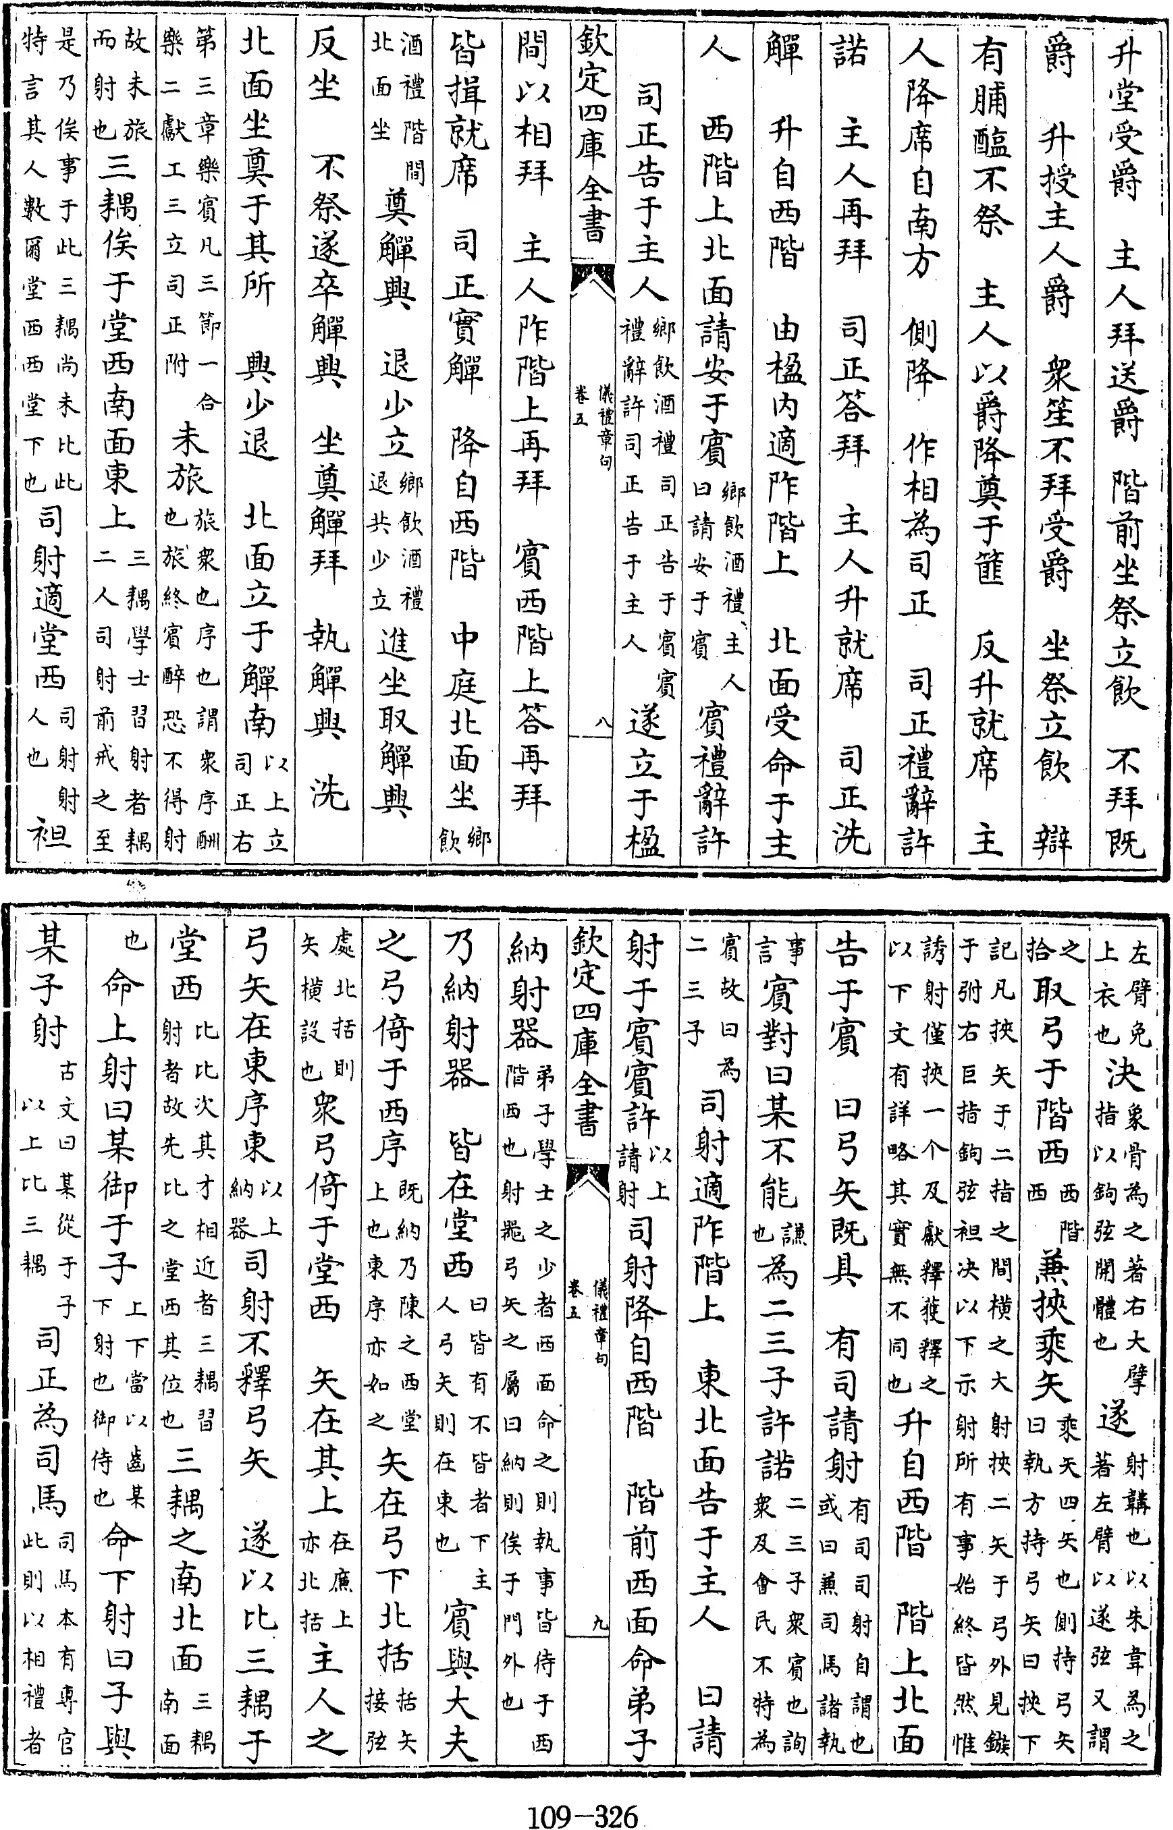 升堂受爵 主人拜送爵 階前坐祭立飲 不拜既
爵 升授主人爵 衆笙不拜受爵 坐祭立飲 辯
有脯醢不祭 主人以爵降奠于篚 反升就席 主
人降席自南方 側降 作相為司正 司正禮辭許
諾 主人再拜 司正答拜 主人升就席 司正洗
觶 升自西階 由楹内適阼階上 北面受命于主
人 西階上北面請安于賓 鄉飲酒禮主人曰請安于賓 賓禮辭許
司正告于主人 鄉飲酒禮司正告于賓賓禮辭許司正告于主人 遂立于楹
欽定四庫全書 儀禮章句 卷五 八
間以相拜 主人阼階上再拜 賓西階上答再拜
皆揖就席 司正實觶 降自西階 中庭北面坐 鄉飲
酒禮階間北面坐 奠觶興 退少立 鄉飲酒禮退共少立 進坐取觶興
反坐 不祭遂卒觶興 坐奠觶拜 執觶興 洗
北面坐奠于其所 興少退 北面立于觶南 以上立司正右
第三章樂賓凡三節一合樂二獻工三立司正附 未旅 旅衆也序也謂衆序酬也旅終賓醉恐不得射
故未旅而射也 三耦俟于堂西南面東上 三耦學士習射者耦二人司射前戒之至
是乃俟事于此三耦尚未比此特言其人數爾堂西西堂下也 司射適堂西 司射射人也 袒
左臂免上衣也 決 象骨為之著右大擘指以鉤弦開體也 遂 射韝也以朱韋為之著左臂以遂弦又謂
之拾 取弓于階西 西階西 兼挾乘矢 乘矢四矢也側持弓矢曰執方持弓矢曰挾下
記凡挾矢于二指之間橫之大射挾二矢于弓外見鏃于弣右巨指鉤弦袒决以下示射所有事始終皆然惟
誘射僅挾一个及獻釋獲釋之以下文有詳略其實無不同也 升自西階 階上北面
告于賓 曰弓矢既具 有司請射 有司司射自謂也或曰兼司馬諸執
事言 賓對曰某不能 謙也 為二三子許諾 二三子衆賓也詢衆及會民不特為
賓故曰為二三子 司射適阼階上 東北面告于主人 曰請
射于賓賓許 以上請射 司射降自西階 階前西面命弟子
欽定四庫全書 儀禮章句 卷五 九
納射器 弟子學士之少者西面命之則執事皆待于西階西也射器弓矢之屬曰納則俟于門外也
乃納射器 皆在堂西 曰皆有不皆者下主人弓矢則在東也 賓與大夫
之弓倚于西序 既納乃陳之西堂上也東序亦如之 矢在弓下北括 括矢接弦
處北括則矢橫設也 衆弓倚于堂西 矢在其上 在廉上亦北括 主人之
弓矢在東序東 以上納器 司射不釋弓矢 遂以比三耦于
堂西 比比次其才相近者三耦習射者故先比之堂西其位也 三耦之南北面 三耦南面
也 命上射曰某御于子 上下當以齒某下射也御侍也 命下射曰子與
某子射 古文曰某從于子以上比三耦 司正為司馬 司馬本有專官此則以相禮者
109-326